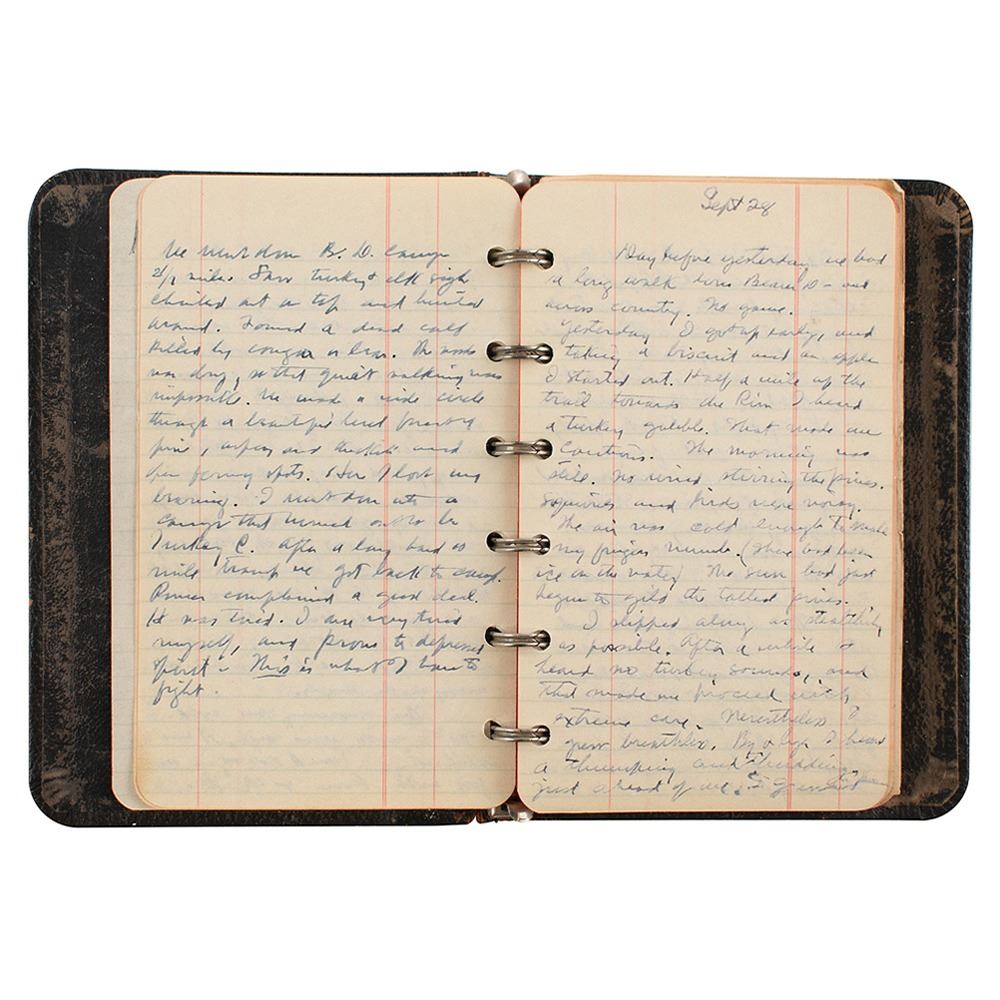 We went down B. D. canyon
2 1/2 miles. Saw turkey & elk sign
climbed out on top and hunted
around. Found a dead calf
killed by cougar or bear. The woods
was dry, so that quiet walking was
impossible. We made a wide circle
through a beautiful land forest of
pine, aspen and thicket and
ferny spots. Here I lost my
bearing. I went down into a
canyon that turned out to be
Turkey C. After a long hard 10
mile tramp we got back to camp.
Romer complained a good deal.
He was tired. I am very tired
myself, and prone to depressed
spirit - This is what I have to
fight.
Sept 28
Day before yesterday we had
a long walk down Bear C - and
across country. No game.
Yesterday I got up early, and
taking a biscuit and an apple
I started out. Half a mile up the
trail towards the Rim I heard
a turkey gobble. That made me
Cautious. The morning was
still. No wind stirring the pines.
Squirrels and birds were noisy.
The air was cold enough to make
my fingers numb. (There had been
ice on the water) The sun had just
begun to gild the tallest pines.
I slipped along as stealthily
as possible. After a while I
heard no turkey sounds, and
that made me proceed with
extreme care. Nevertheless I
grew breathless. By & bye I heard
a thumping and thudding
just ahead of me.